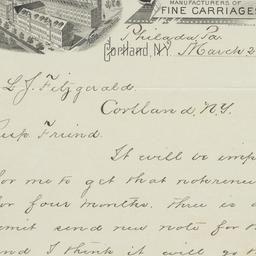 MANUFACTURERS OF
FINE CARRIAGES
Philada, Pa
Cortland, N.Y. March 2
L J Fitzgerald
Cortland, N.Y.
Friend.
It will be
for me to get that
for four months. there is
send new note for
and I think it will go